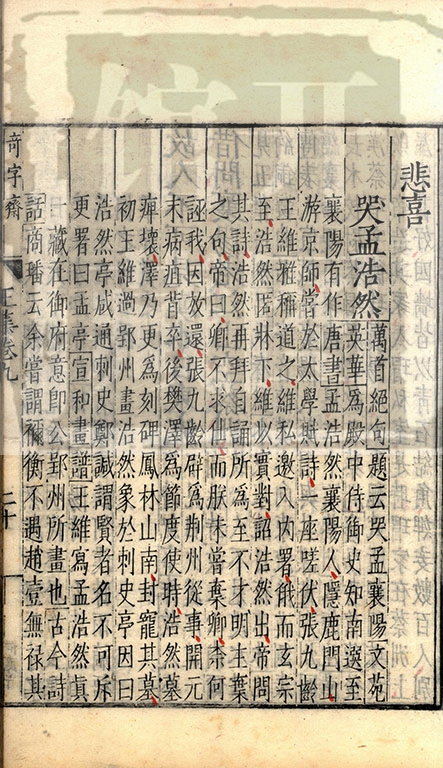 悲喜
哭孟浩然
萬首絕句題云哭孟襄陽文苑
英華為殿中侍御史知南選至
襄陽有作唐書孟浩然襄陽人隱鹿門山
游京師嘗於太學賦詩一座嗟伏張九齡
王維雅稱道之維私邀入內署俄而玄宗
至浩然匿牀下維以實對詔浩然出帝問
其詩浩然再拜自誦所為至不才明主棄
之句帝曰卿不求仕而朕未嘗棄卿柰何
誣我因放還張九齡辟為荊州從事開元
末病疽背卒後樊澤為節度使時浩然墓
庳壞澤乃更為刻碑鳳林山南封寵其墓
初王維過郢州畫浩然象於刺史亭因曰
浩然亭咸通刺史鄭諴謂賢者名不可斥
更署曰孟亭宣和畫譜王維寫孟浩然真
一藏在御府意即公郢州所畫也古今詩
話商璠云余嘗謂禰衡不遇趙壹無祿其
奇字齋
王集卷九
二十